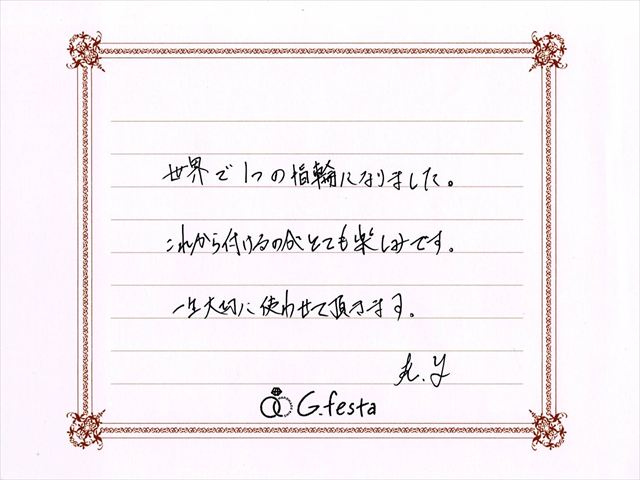 世界で1つの指輪になりました。
これから付けるのがとても楽しみです。
一生大切に使わせて頂きます。
K.Y
G.festa